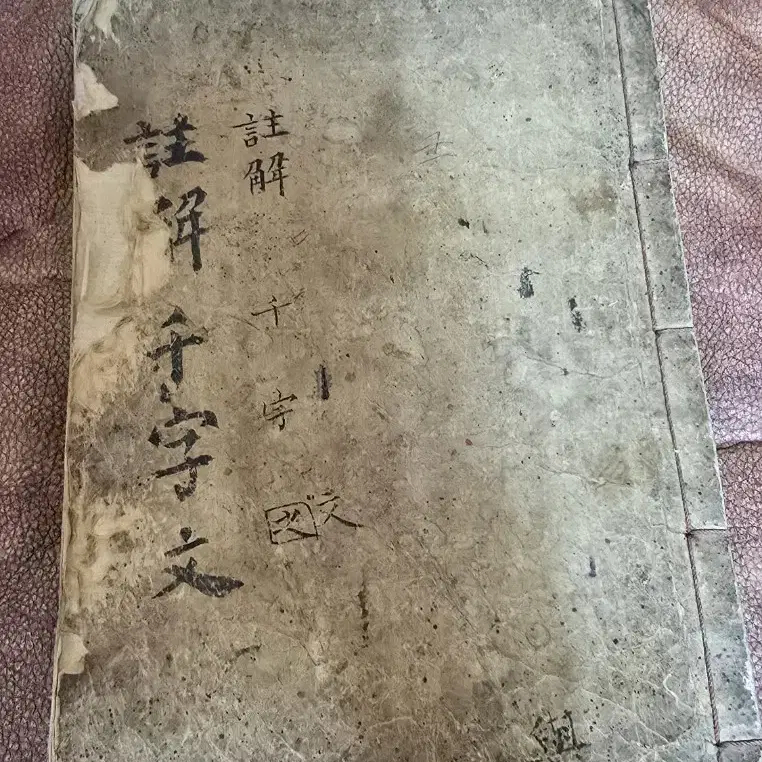 註解千字文
註解千字文